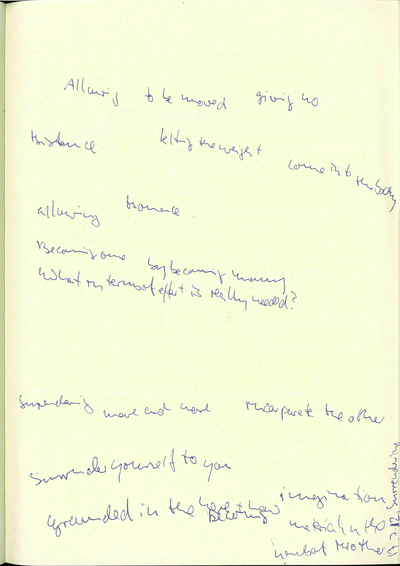 Allowing to be moved giving no
resistance letting the weight come into the body
allowing resonance
Becoming one by becoming many
What in terms of effort is really needed?
Surrendering more and more incorporate the other
Surrender yourself to you
grounded in the here + now imagination
Becoming material in the
other
Surrendering